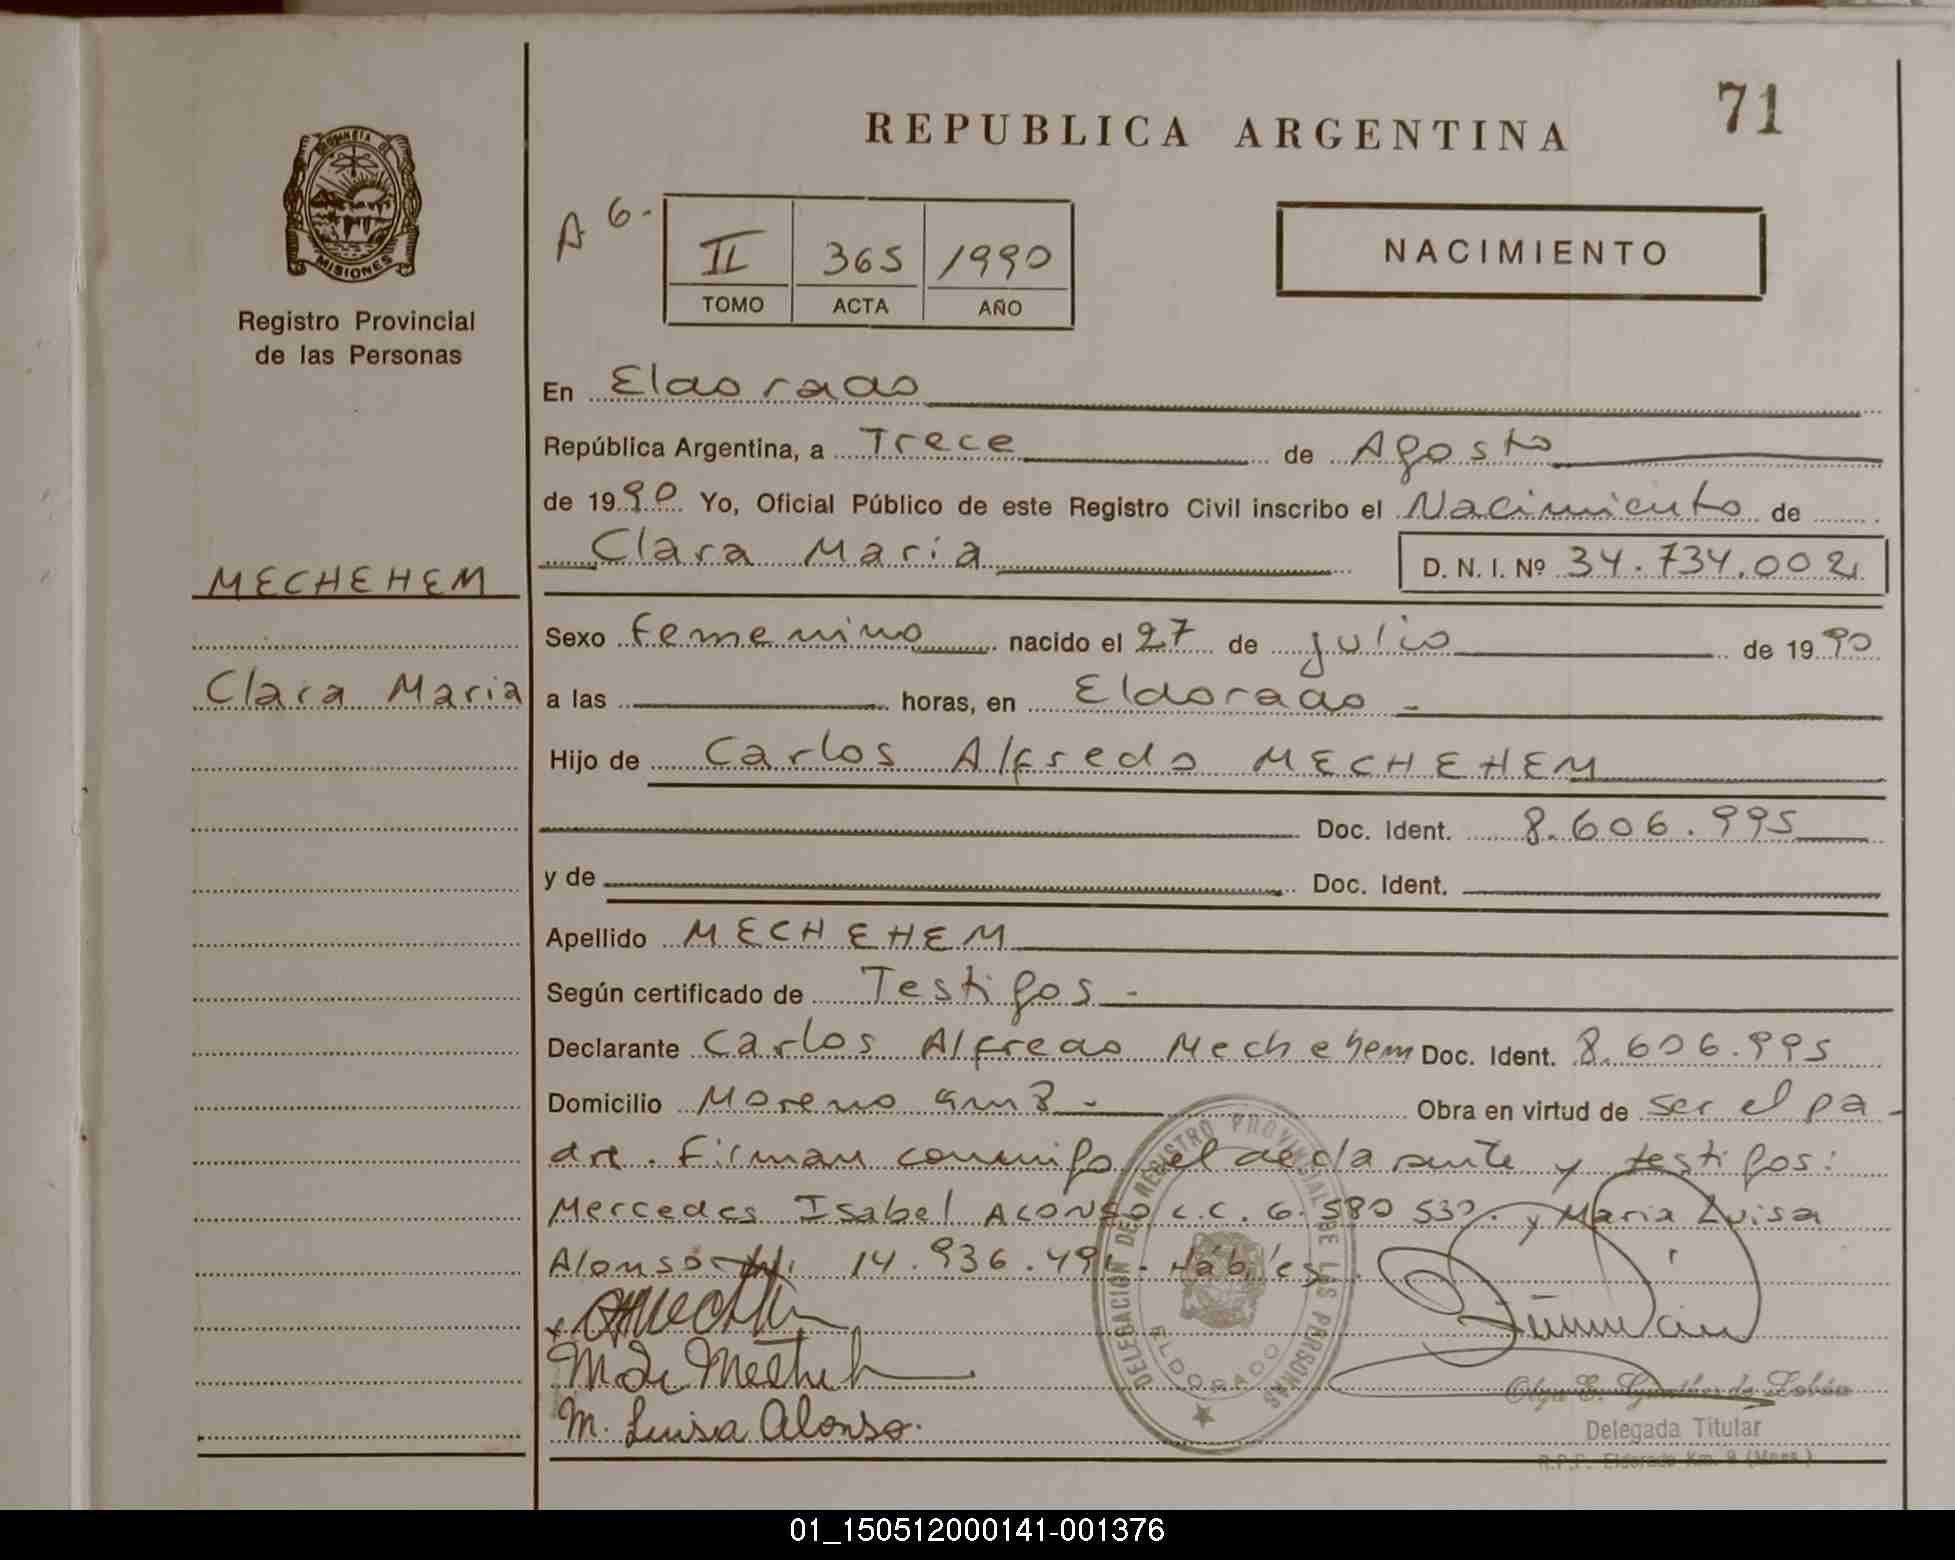 71
REPUBLICA ARGENTINA
A 6-
II 365 1990
TOMO ACTA AÑO
NACIMIENTO
MISIONES
Registro Provincial
de las Personas
En Eldorado
República Argentina, a Trece de Agosto
de 1990 Yo, Oficial Público de este Registro Civil inscribo el Nacimiento de
Clara Maria D. N. I. Nº 34.734.002
MECHEHEM
Sexo Femenino nacido el 27 de julio de 1990
Clara Maria
a las horas, en Eldorado -
Hijo de Carlos Alfredo MECHEHEM
Doc. Ident. 8.606.995
y de Doc. Ident.
Apellido MECHEHEM
Según certificado de Testigos -
Declarante Carlos Alfredo Mechehem Doc. Ident. 8.606.995
Domicilio Moreno - Obra en virtud de ser el pa-
dre. Firman conmigo el declarante y testigos:
Mercedes Isabel ALONSO L.C. 6.580 530. y Maria Luisa
Alonso 14.936.491 - Hábiles.
M. Luisa Alonso.
DELEGACION DEL REGISTRO PROVINCIAL DE LAS PERSONAS
ELDORADO
Olga E. de
Delegada Titular
R.P.P. Eldorado Km. 9 (Mnes.)
01_150512000141-001376